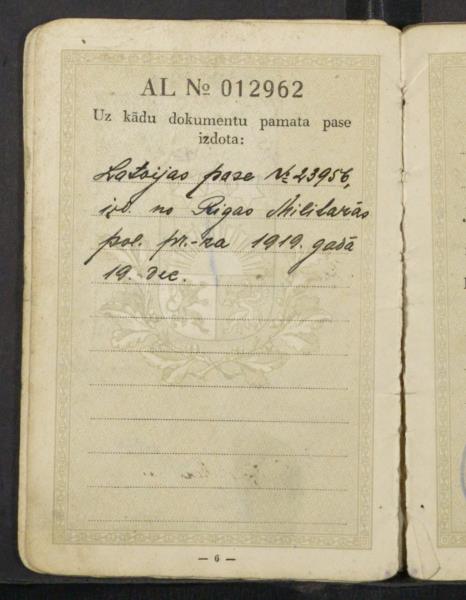 AL № 012962
Uz kādu dokumentu pamata pase
izdota:
Latvijas pase № 23956,
izd. no Rigas Militarās
pol. pr.-ka 1919. gadā
19. dec.
— 6 —